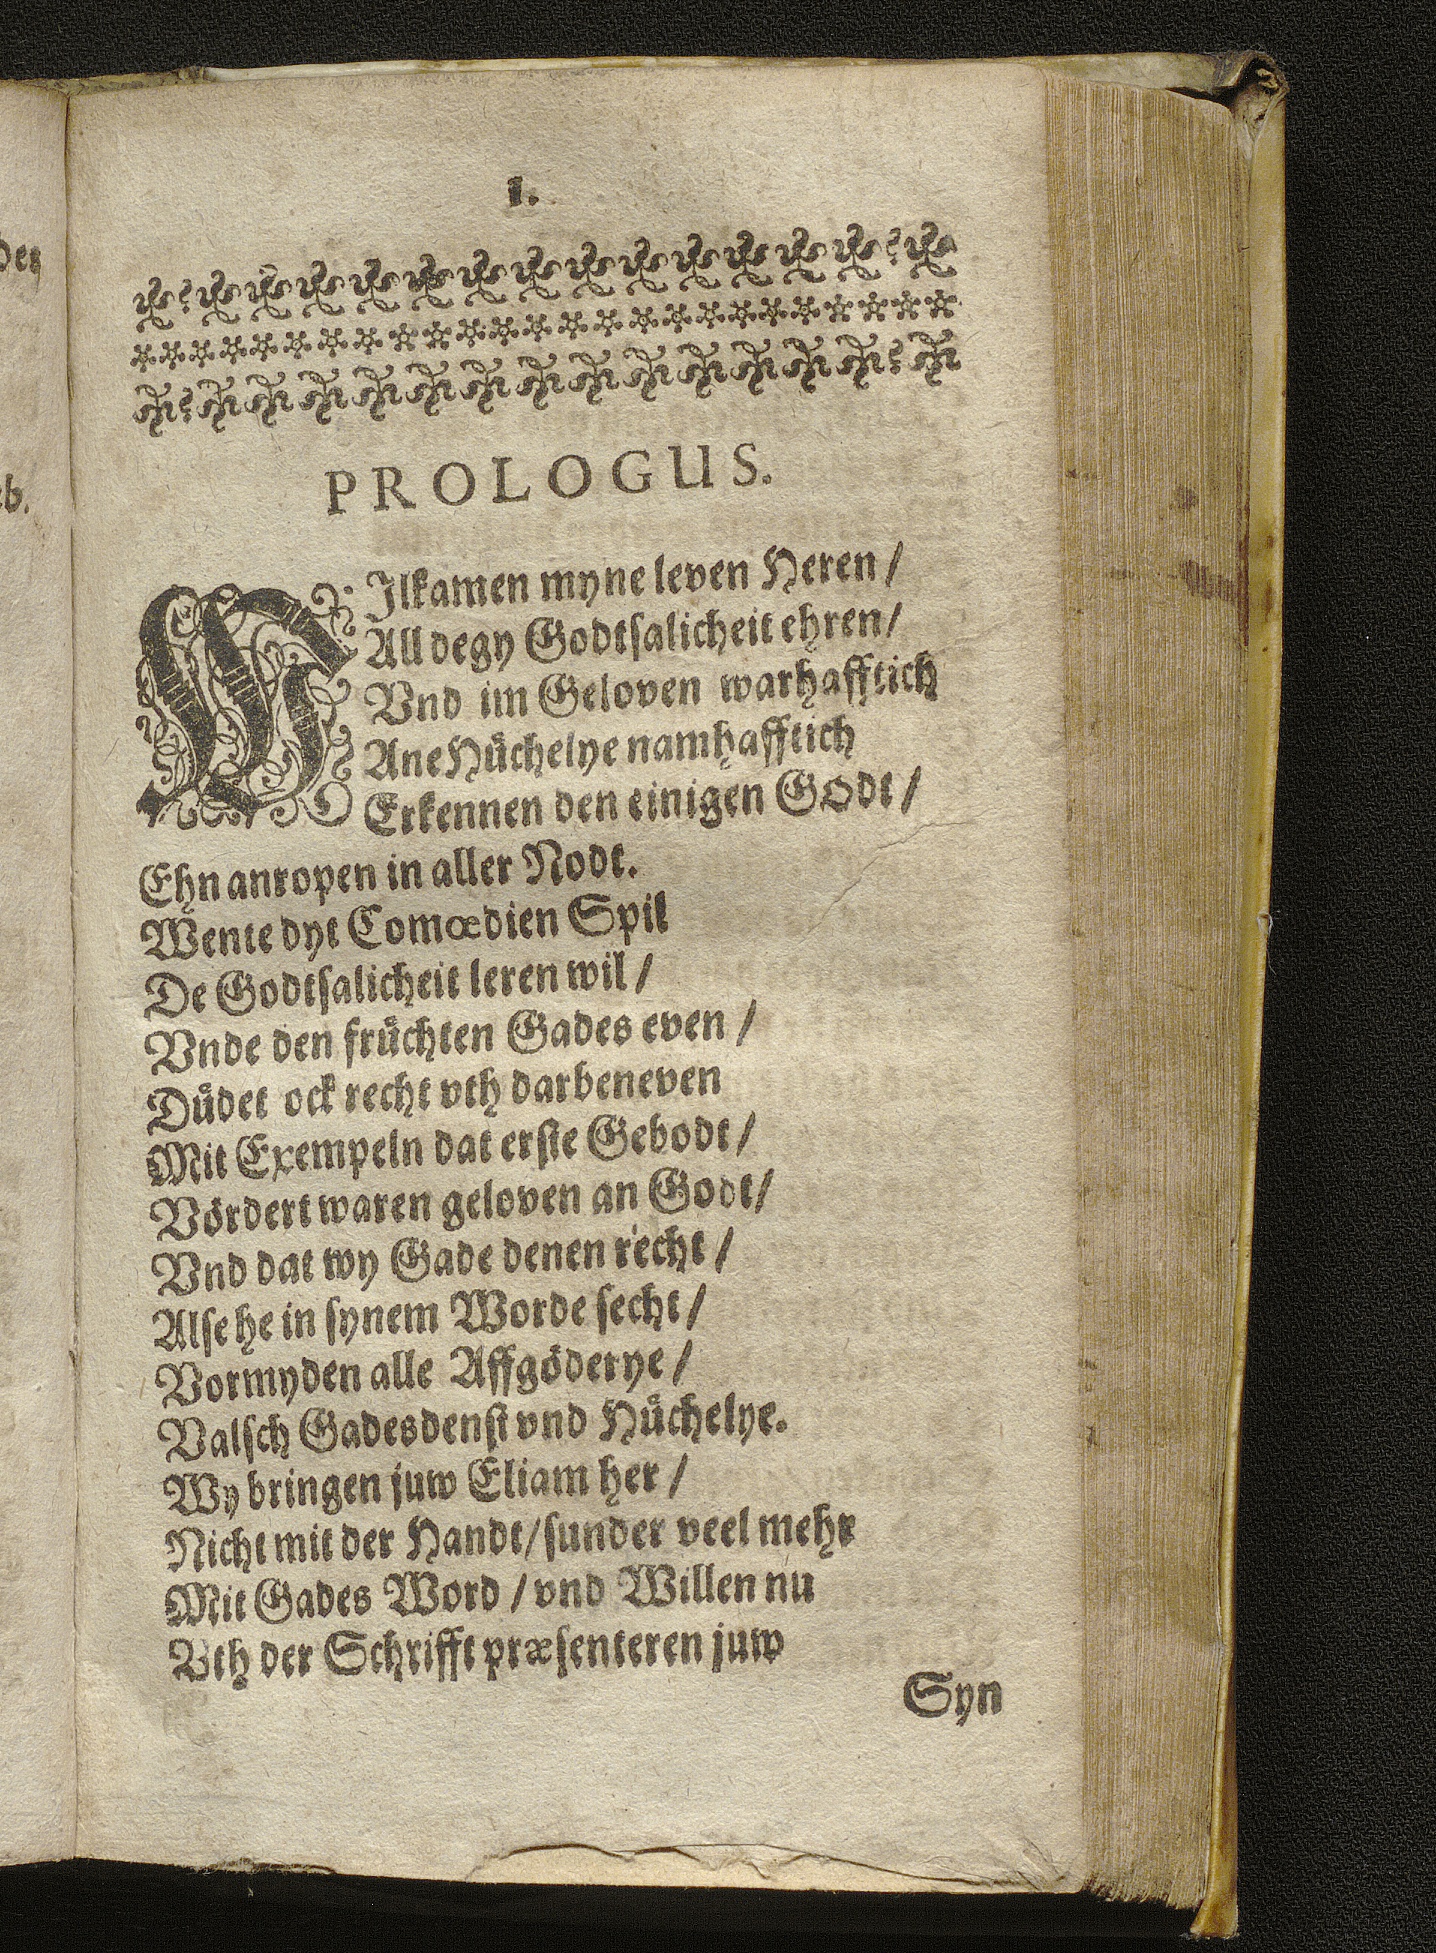 1.
PROLOGUS.
WIlkamen myne leven Heren /
All de gy Godtsalicheit ehren /
Vnd im Geloven warhafftich
Ane Hůchelye namhafftich
Erkennen den einigen GOdt /
Ehn anropen in aller Nodt.
Wente dyt Comœdien Spil
De Godtsalicheit leren wil /
Vnde den früchten Gades even /
Důdet ock recht vth darbeneven
Mit Exempeln dat erste Gebodt /
Vördert waren geloven an Godt /
Vnd dat wy Gade denen recht /
Alse he in synem Worde secht /
Vormyden alle Affgöderye /
Valsch Gadesdenst vnd Hůchelye.
Wy bringen juw Eliam her /
Nicht mit der Handt / sunder veel mehr
Mit Gades Word / vnd Willen nu
Vth der Schrifft præsenteren juw
Syn